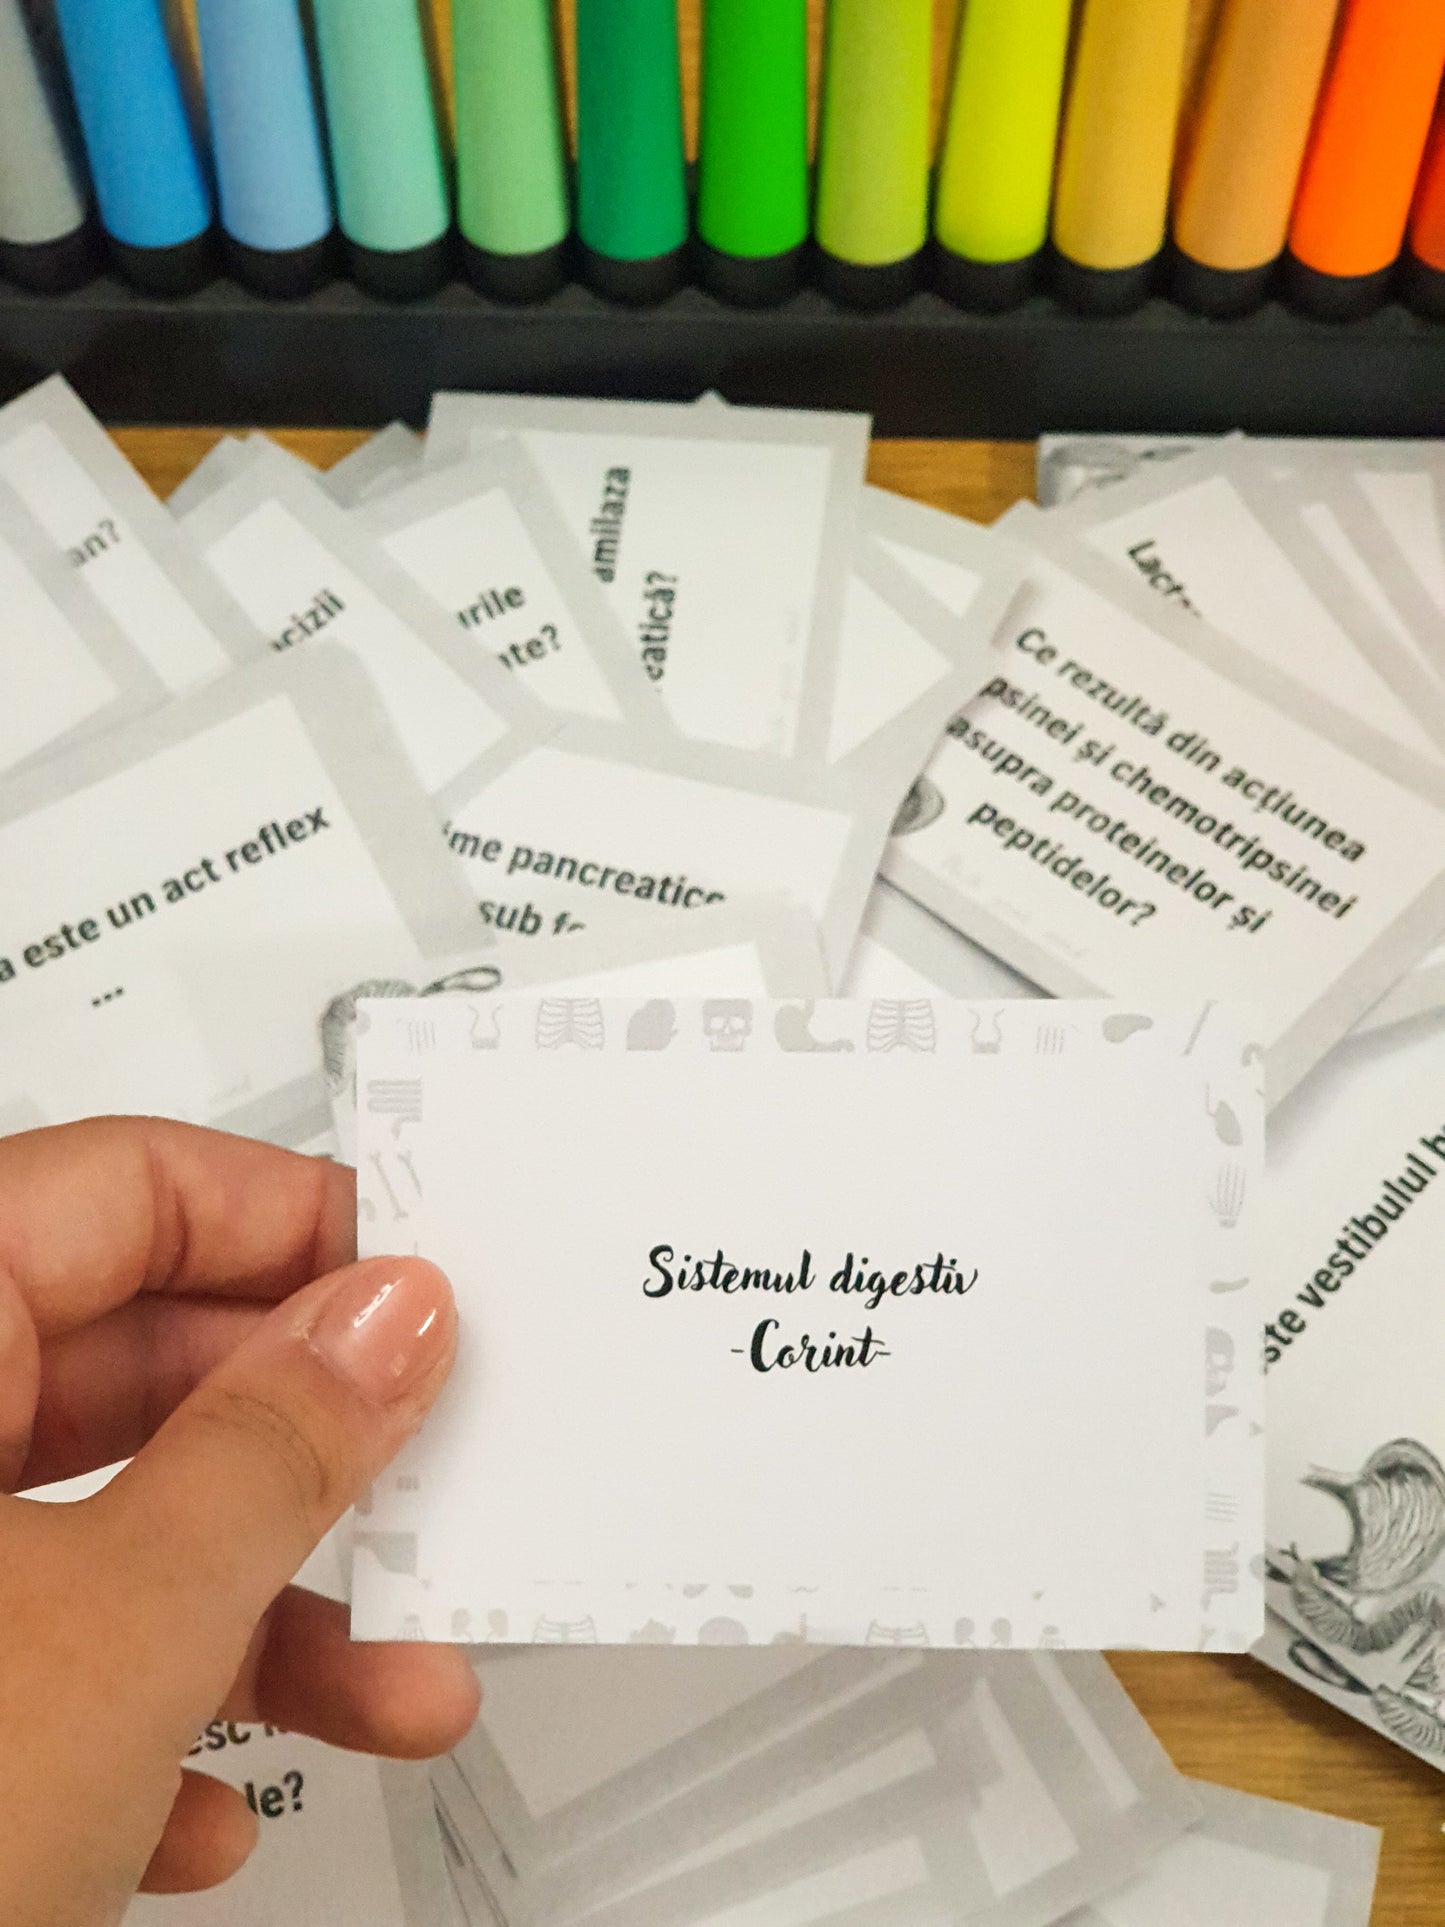 amilaza
Lact
Ce rezultă din acțiunea
psinei și chemotripsinei
asupra proteinelor și
peptidelor?
an?
cizii
urile
te?
eatică?
a este un act reflex
...
me pancreatice
sub
ste vestibulul b
Sistemul digestiv
-Corint-
esc
le?